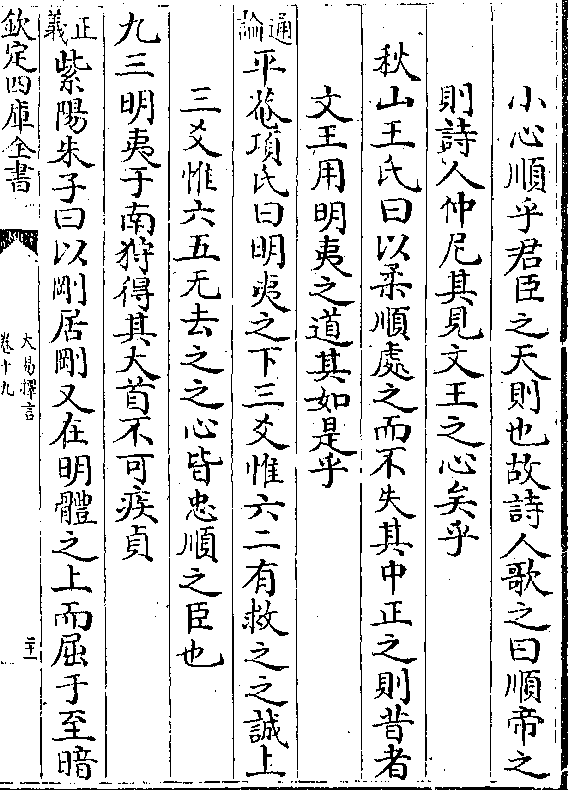 小心順乎君臣之天則也故詩人歌之曰順帝之
則詩人仲尼其見文王之心矣乎
秋山王氏曰以柔順處之而不失其中正之則昔者
文王用明夷之道其如是乎
通論
平菴項氏曰明夷之下三爻惟六二有救之之誠上
三爻惟六五无去之之心皆忠順之臣也
九三明夷于南狩得其大首不可疾貞
正義
紫陽朱子曰以剛居剛又在明體之上而屈于至暗
欽定四庫全書
大易擇言
卷十九
二十一